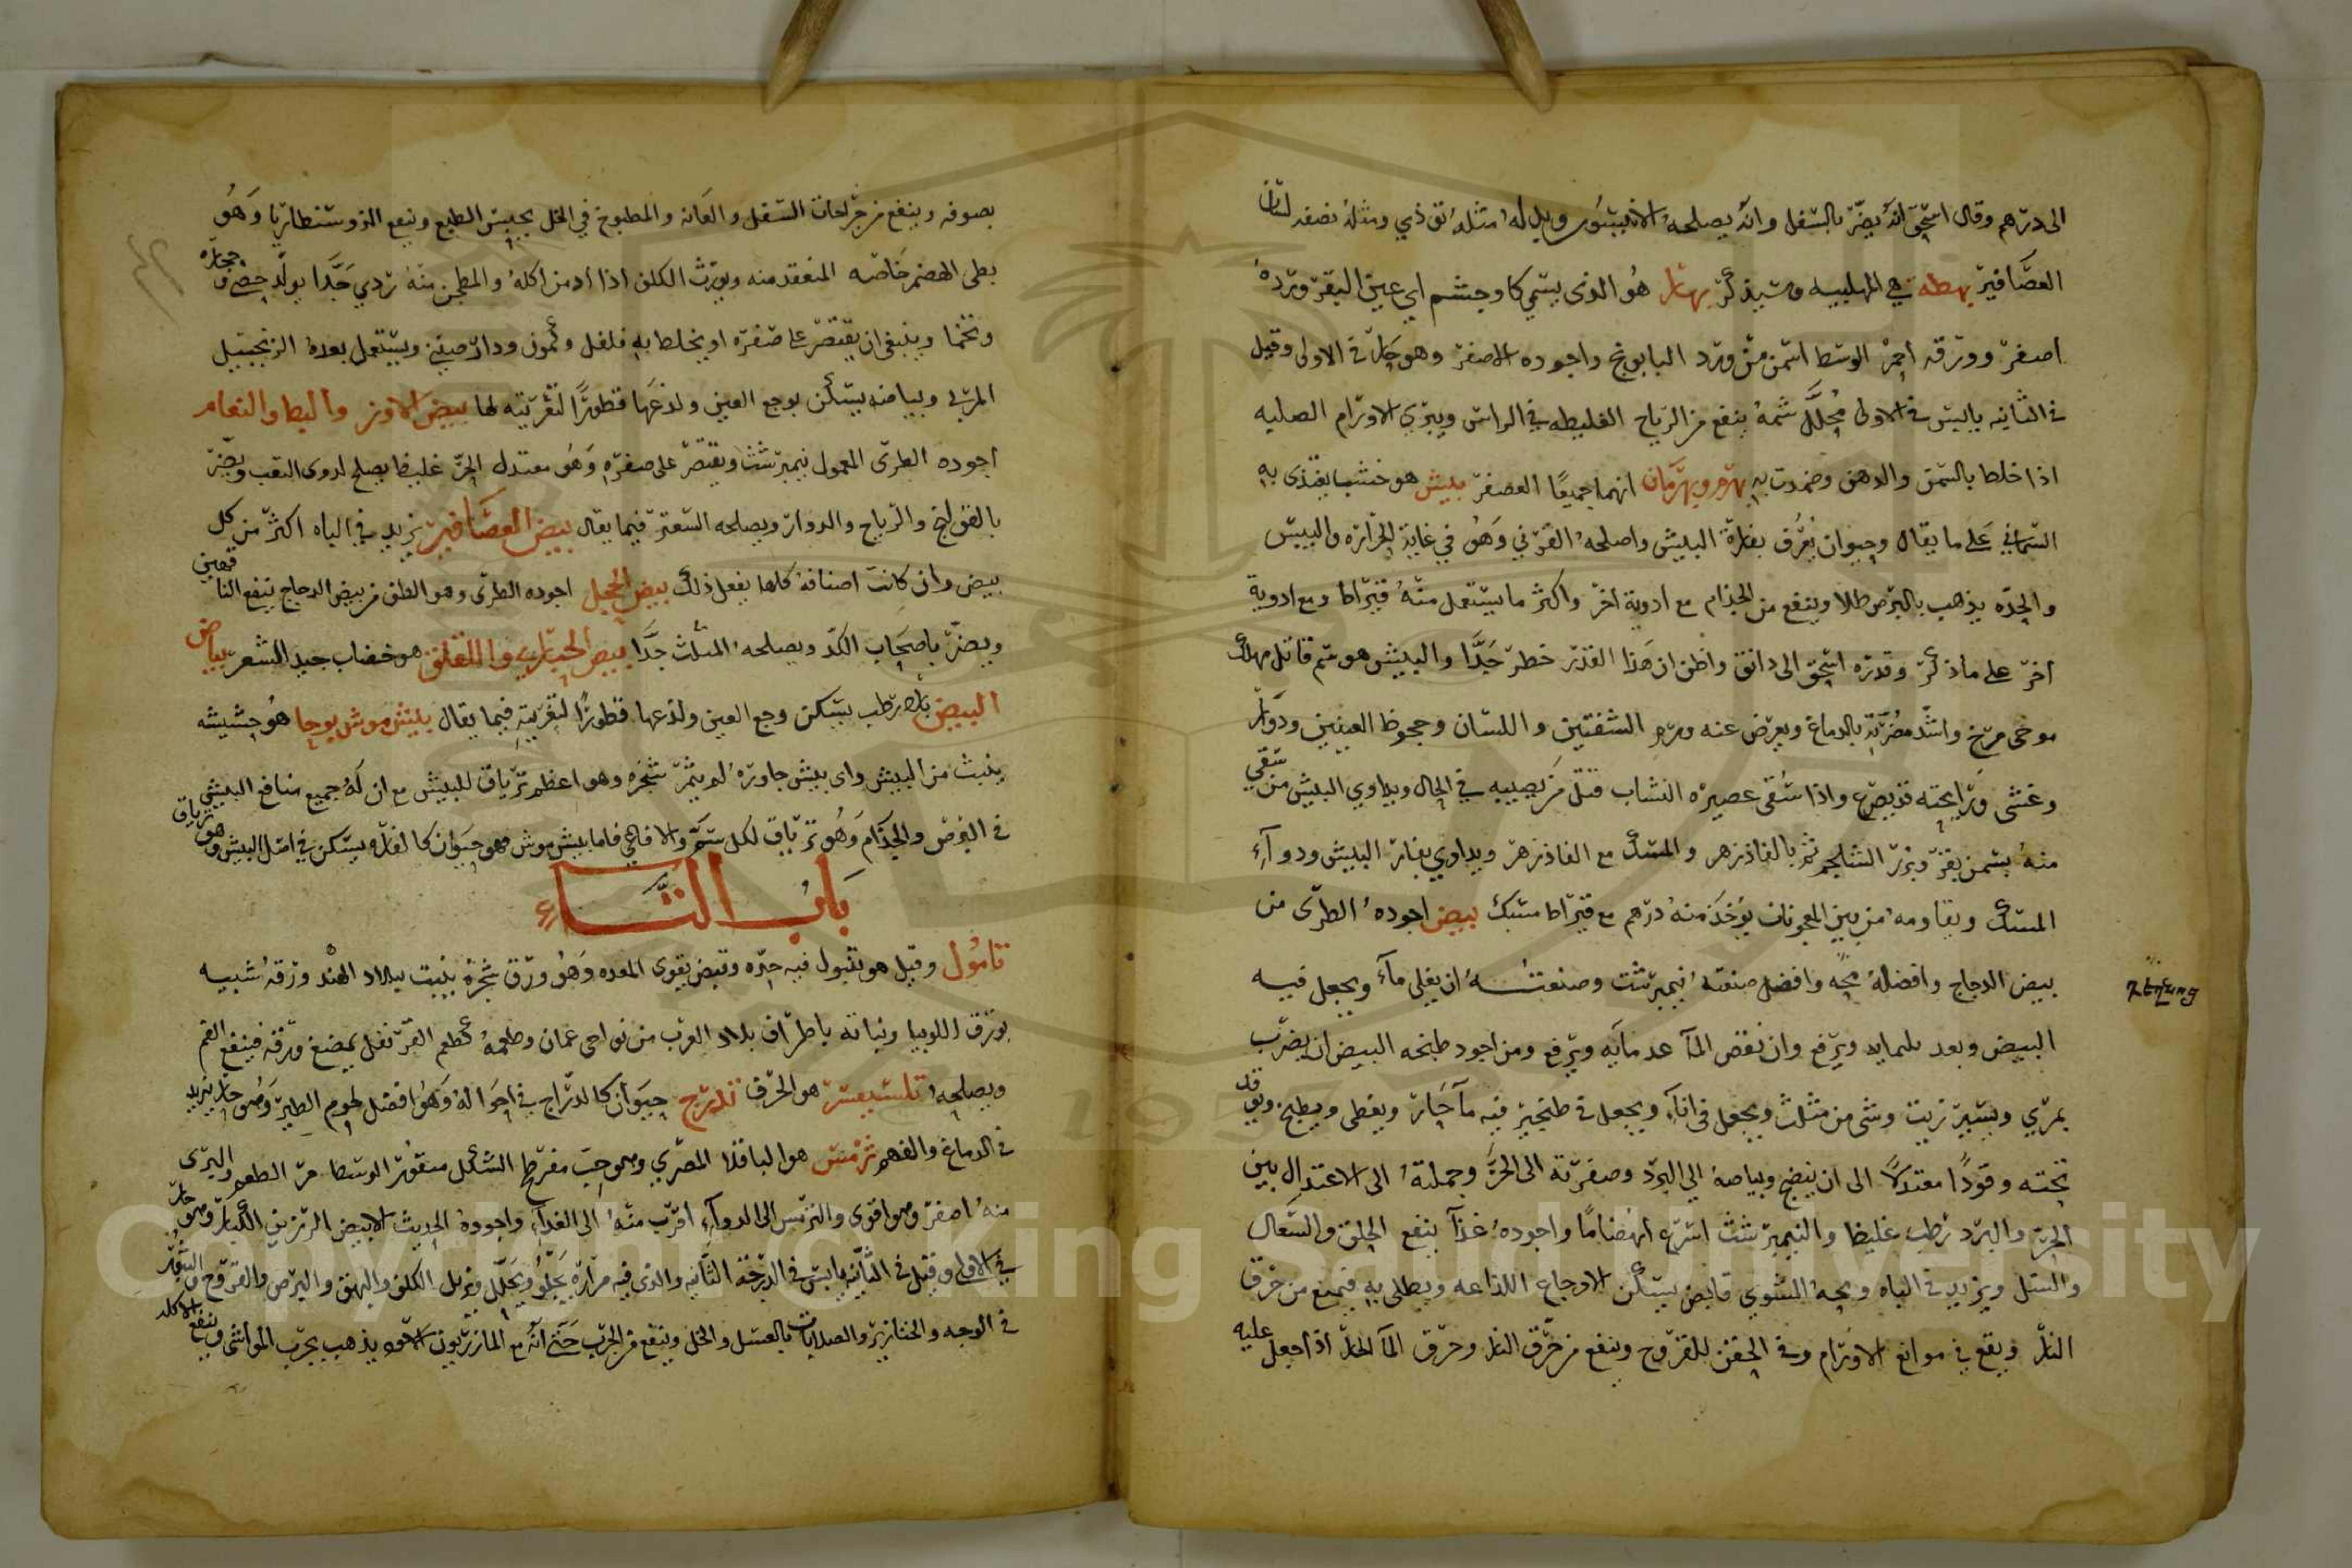 الى درهم وقال اسحق انه يضر بالسفل وانه يصلحه الانيسون وبدله مثله تودري ومثله نصفه لسان
العصافير بهطة هي المهلبيه وسيذكر بهار هو الذى يسمى كاوجشم اي عين البقر وورده
اصفر وورقه احمر الوسط اسمن من ورد البابونج واجوده الاصفر وهو حار في الاولى وقيل
في الثانيه يابس في الاولى محلل شمه ينفع من الرياح الغليظه في الراس ويبري الاورام الصلبه
اذا خلط بالسمن والدهن وضمدت به بهرم وبهرمان انهما جميعا العصفر بيش هو خشب يغتذى به
السماني على ما يقال وحيوان يعرف بفارة البيش واصلحه القرني وهو في غاية الحرارة واليبس
والحده يذهب بالبرص طلا وينفع من الجذام مع ادوية اخر واكثر ما يستعمل منه قيراط ومع ادوية
اخر على ما ذكر وقدره اسحق الى دانق واظن ان هذا القدر خطر جدا والبيش هو سم قاتل مهلك
موخى مرخ واشد مضرته بالدماغ ويعرض عنه ورم الشفتين واللسان وجحوظ العينين ودوار
وغشى ورايحته قد يصرع واذا سقى عصيره النشاب قتل من يصيبه في الحال ويداوي البيش من سقي
منه بسمن بقر وبزر الشلجم ثم بالفاذزهر والمسك مع الفاذزهر ويداوي بفار البيش ودوآء
المسك ويقاومه من بين المعجونات يوخذ منه درهم مع قيراط مسك بيض اجوده الطرى من
بيض الدجاج وافضله محه وافضل صنعته نيمبرشت وصنعته ان يغلى مآء ويجعل فيه
البيض وبعد ويرفع وان نقص المآ عد مايه ويرفع ومن اجود طبخه البيض ان يضرب
بمري ويسير زيت وشى من مثلث ويجعل فى انآء ويجعل في طنجير فيه مآ حار ويغطى ويطبخ ويوقد
تحته وقودا معتدلا الى ان ينضج وبياضه الى البرد وصفرته الى الحر وجملته الى الاعتدال بين
الحر والبرد رطب غليظ والنيمبرشت اسرع انهضاما واجوده غذآ ينفع الحلق والسعال
والسل ويزيد في الباه ومحه المشوي قابض يسكن الاوجاع اللذاعه ويطلى به فيمنع من حرق
النار ويقع في موانع الاورام وفي الحقن للقروح وينفع من حرق النار وحرق المآ الحار اذا جعل عليه
بصوفه وينفع من جراحات السفل والعانه والمطبوخ في الخل يحبس الطبع وينفع الذوسنطاريا وهو
بطى الهضم خاصه المنعقد منه ويورث الكلف اذا ادمن اكله والمطجن منه ردي جدا يولد حصى وحجاره
وتخما وينبغي ان يقتصر على صفره او يخلط به فلفل وكمون ودارصيني ويستعمل بعده الزنجبيل
المربى وبياضه يسكن بوجع العين ولذعها قطورا لتغريته لها بيض الاوز والبط والنعام
اجوده الطرى المعمول نيمبرشت ويقتصر على صفره وهو معتدل الحر غليظ يصلح لذوى التعب ويضر
بالقولنج والرياح والدوار ويصلحه السعتر فيما يقال بيض العصافير يزيد في الباه اكثر من كل
بيض وان كانت اصنافه كلها يفعل ذلك بيض الحجل اجوده الطرى وهو الطف من بيض الدجاج ينفع الناقهين
ويضر باصحاب الكد ويصلحه المثلث جدا بيض الحبارى واللقلق هو خضاب جيد للشعر بياض
البيض بارد رطب يسكن وجع العين ولذعها قطورا لتغريته فيما يقال بيش موش بوحا هو حشيشه
ينبت من البيش واى بيش جاوره لم يثمر شجره وهو اعظم ترياق للبيش مع ان له جميع منافع البيش
في البرص والجذام وهو ترياق لكل سم والافاعي فاما بيش موش فهو حيوان كالفار يسكن في اصل البيش وهو ترياق
باب التاء
تامول وقيل هو تنبول فيه حره وقبض يقوى المعده وهو ورق شجرة ينبت ببلاد الهند ورقه شبيه
بورق اللوبيا ونباته باطراف بلاد العرب من نواحى عمان وطعمه كطعم القرنفل يمضغ ورقه فينفع الفم
ويصلحه هو الحرف تدرج حيوان كالدراج في احواله وهو افضل لحوم الطير وهو حار يزيد
في الدماغ والفهم ترمس هو الباقلا المصري وهو حب مفرطح الشكل منقور الوسط مر الطعم والبرى
منه اصفر وهو اقوى والترمس الى الدوآء اقرب منه الى الغدآء واجوده الحديث الابيض الرزين الكبار وهو حار
في الاولى وقيل في الثانيه يابس في الدرجة الثانيه والذى فيه مرارة يجلو ويحلل ويزيل الكلف والبهق والبرص والقروح والبثور
في الوجه والخنازير والصلابات بالعسل والخل وينفع من الجرب حتى انه مع المازريون الاسود يذهب بجرب المواشى وينفع الاكله
Copyright © King Saud University
1957